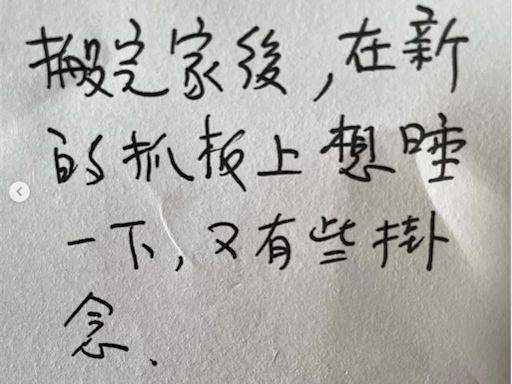 搬完家後,在新
的抓板上想睡
一下,又有些掛
念、